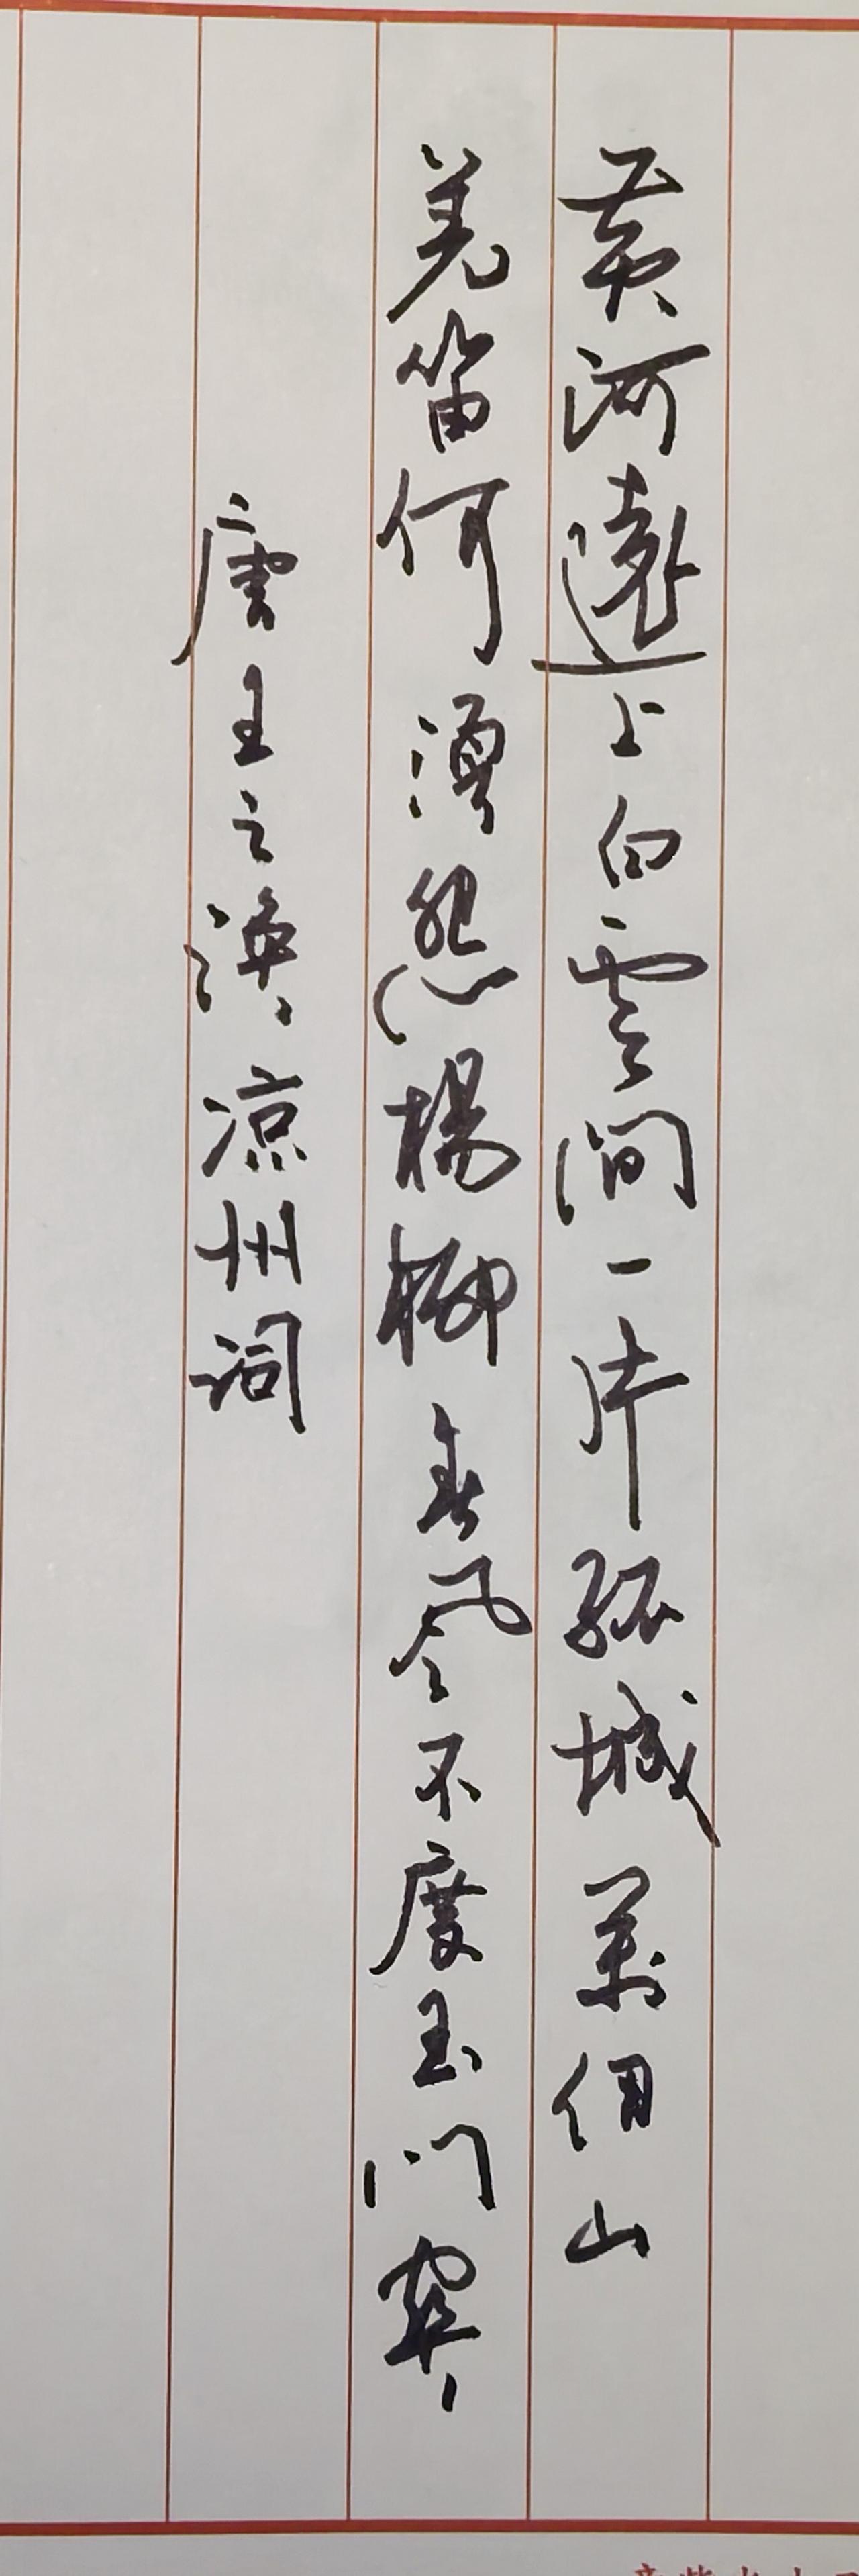 黄河遠上白雲間一片孤城萬仞山
羌笛何湏怨楊柳春風不度玉門關
唐王之渙凉州詞